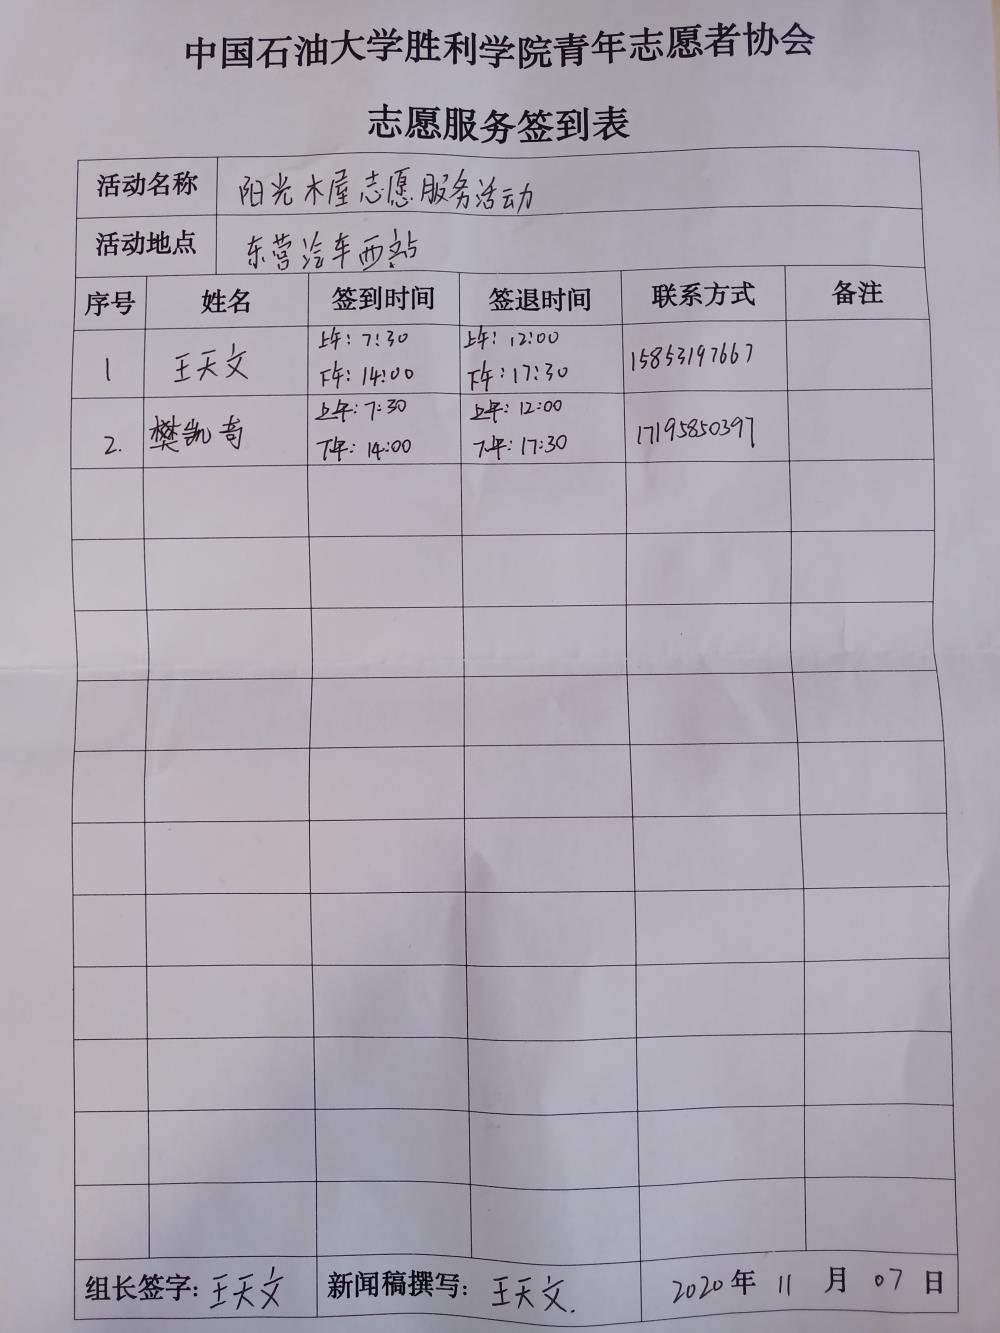 中国石油大学胜利学院青年志愿者协会
志愿服务签到表
活动名称 阳光木屋志愿服务活动
活动地点 东营汽车西站
序号 姓名 签到时间 签退时间 联系方式 备注
1 王天文 上午:7:30 下午:14:00 上午:12:00 下午:17:30 15853197667
2. 樊凯奇 上午:7:30 下午:14:00 上午:12:00 下午:17:30 17195850397
组长签字:王天文 新闻稿撰写:王天文. 2020年11月07日